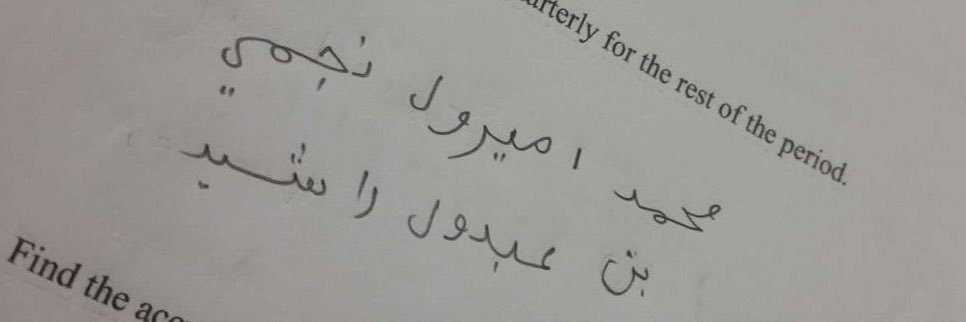 arterly for the rest of the period.
محمد اميرول نجمي
بن عبدول راشيد
Find the acc